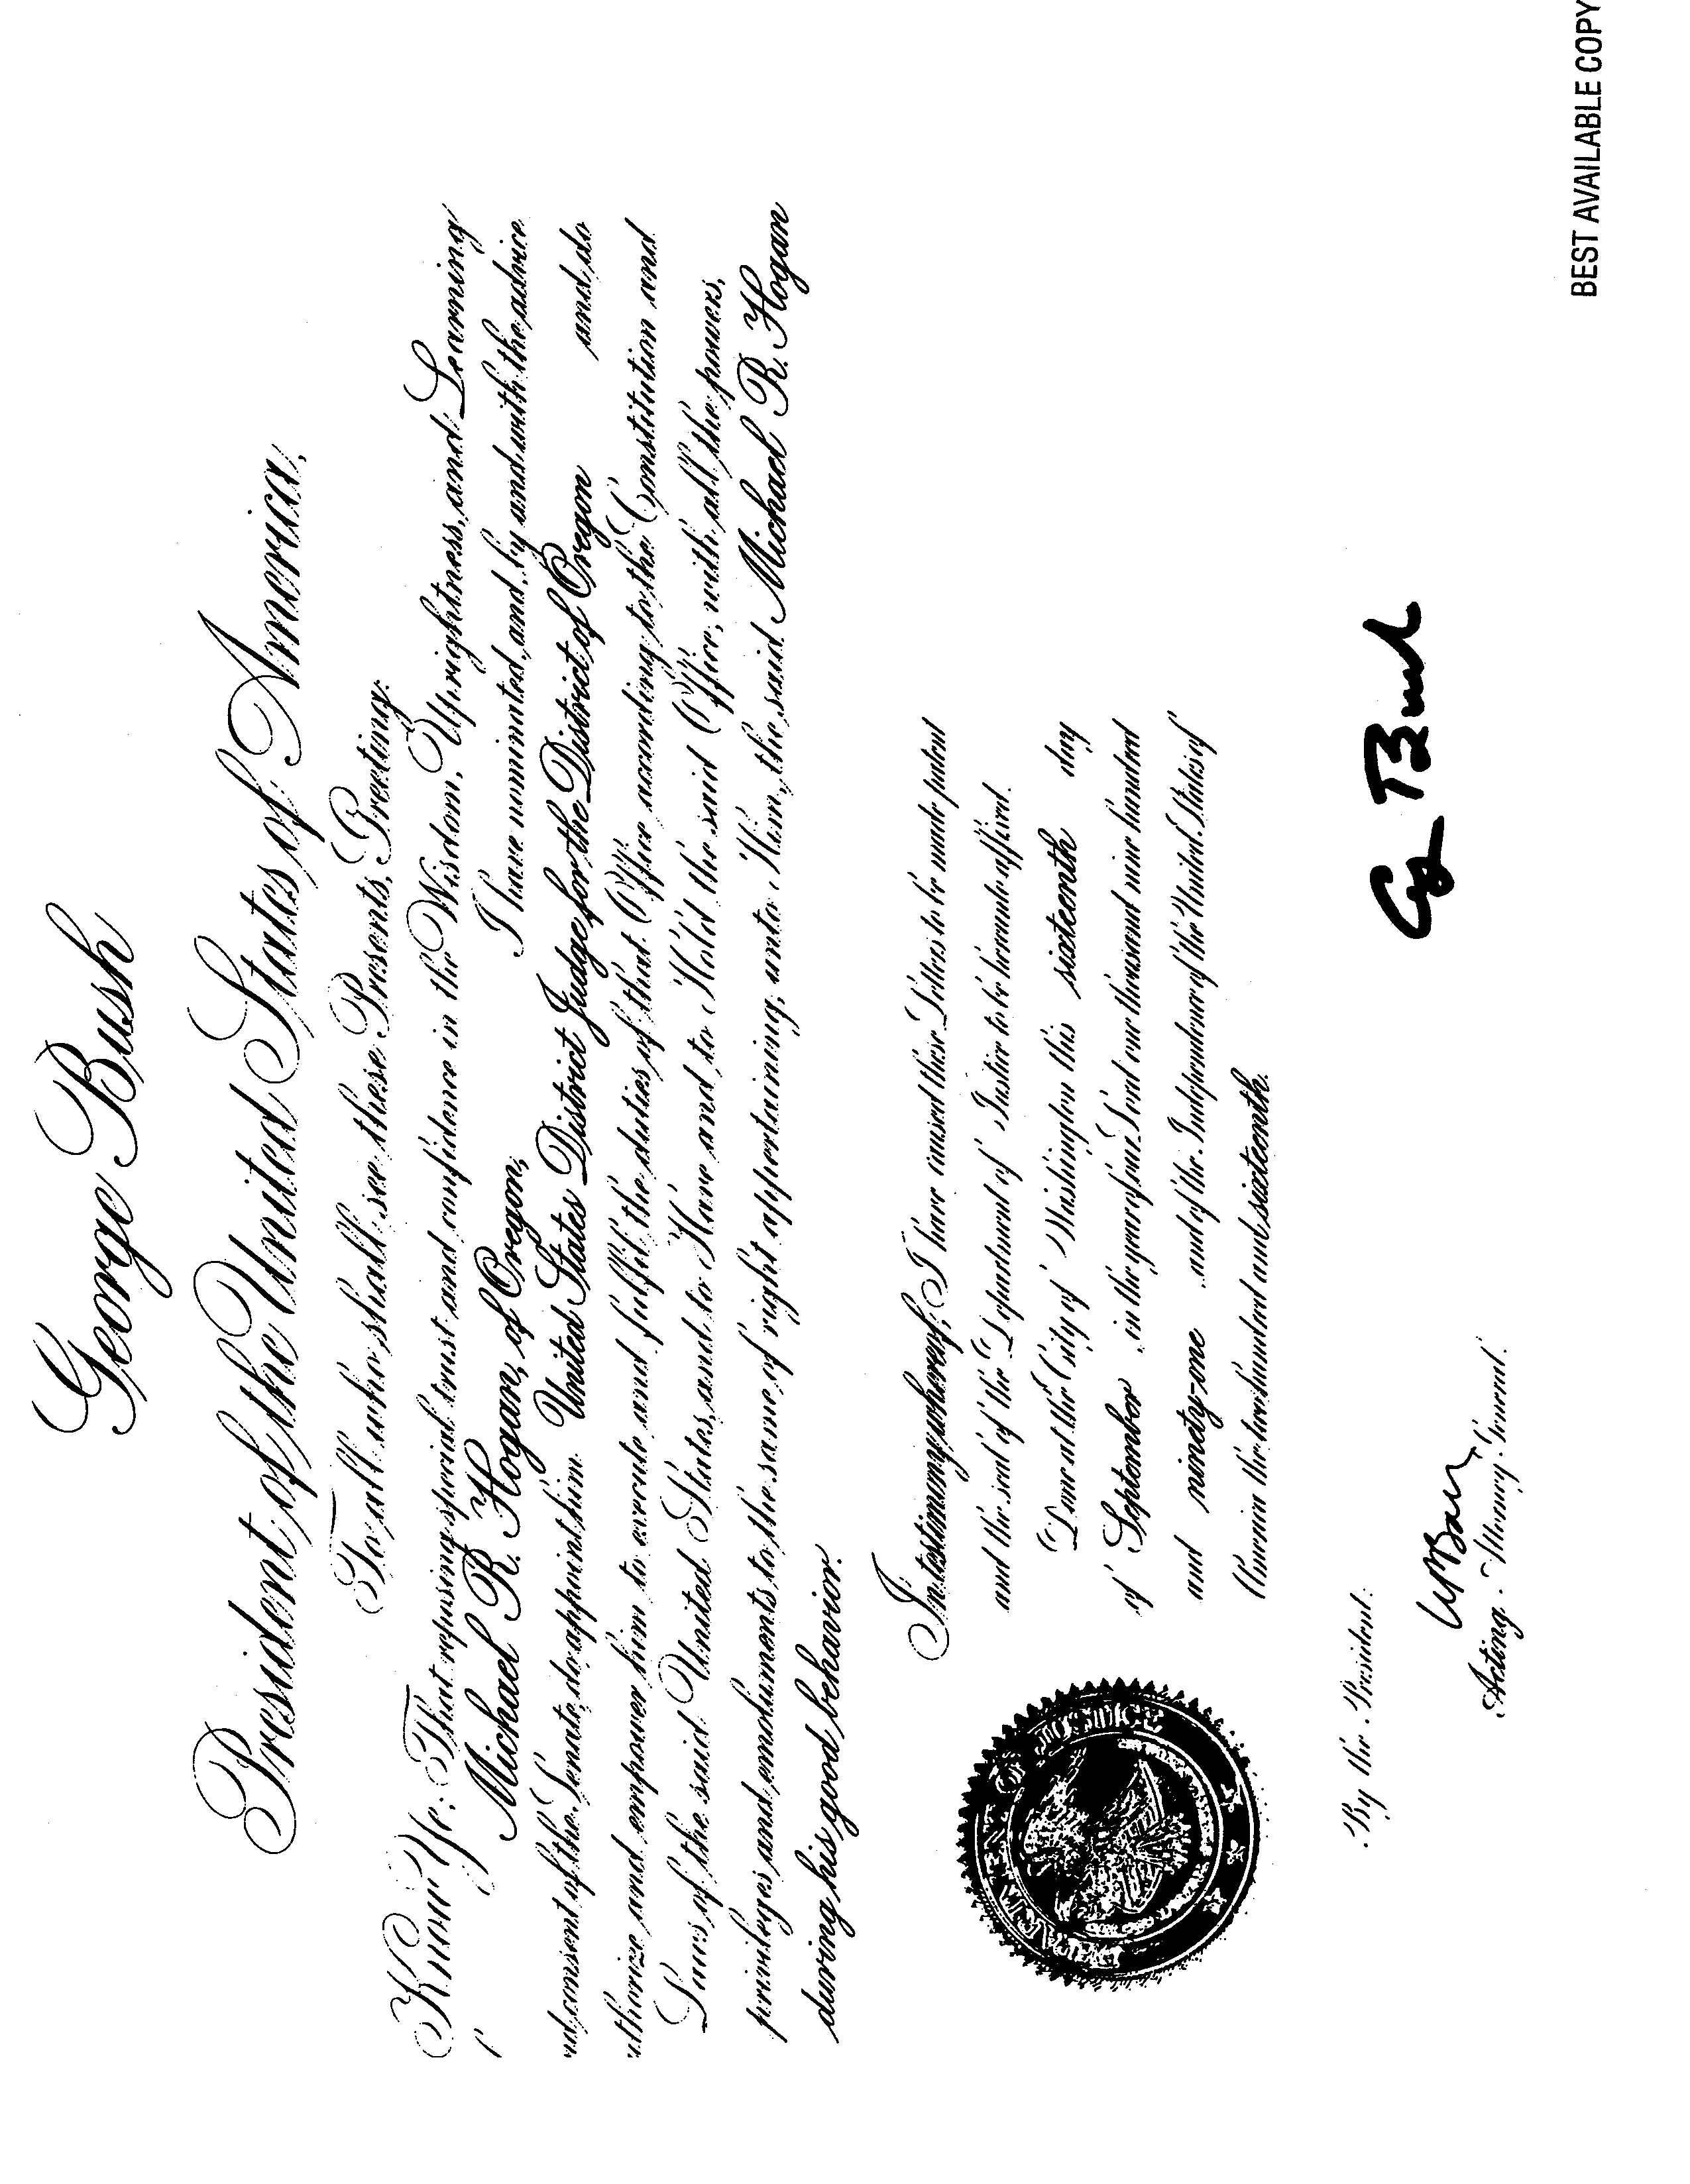 George Bush
President of the United States of America,
To all who shall see these Presents, Greeting:
Know Ye: That reposing special trust and confidence in the Wisdom, Uprightness, and Learning
of Michael R. Hogan, of Oregon, I have nominated, and, by and with the advice
and consent of the Senate, do appoint him United States District Judge for the District of Oregon and do
authorize and empower him to execute and fulfil the duties of that Office according to the Constitution and
Laws of the said United States, and to Have and to Hold the said Office, with all the powers,
privileges and emoluments to the same of right appertaining, unto Him, the said Michael R. Hogan
during his good behavior.
In testimony whereof, I have caused these Letters to be made patent
and the seal of the Department of Justice to be hereunto affixed.
Done at the City of Washington this sixteenth day
of September in the year of our Lord one thousand nine hundred
and ninety-one and of the Independence of the United States of
America the two hundred and sixteenth.
DEPARTMENT OF JUSTICE
By the President:
G Bush
WBarr
Acting Attorney General.
BEST AVAILABLE COPY